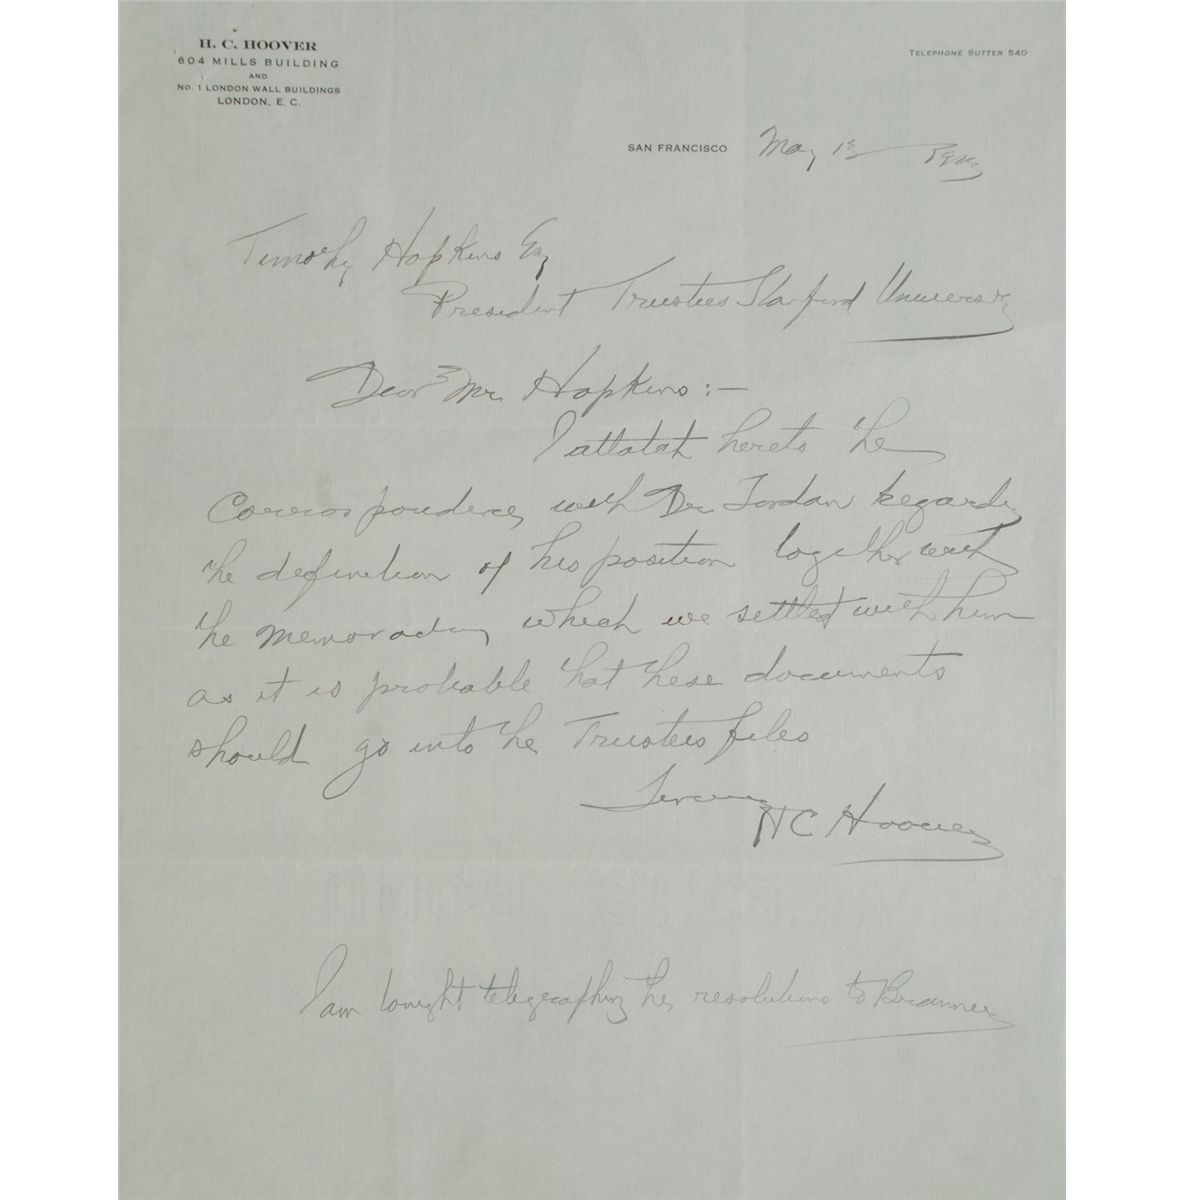 H. C. HOOVER
604 MILLS BUILDING
AND
No. 1 LONDON WALL BUILDINGS
LONDON, E. C.
TELEPHONE SUTTER 540
SAN FRANCISCO May 13
Timothy Hopkins Esq
President Trustees Stanford University
Dear Mr. Hopkins:—
I attatch hereto the
Correspondence with Dr Jordan regarding
the definition of his position together with
the memorandum which we settled with him
as it is probable that these documents
should go into the Trustees files
HC Hoover
I am tonight telegraphing the resolutions to Branner